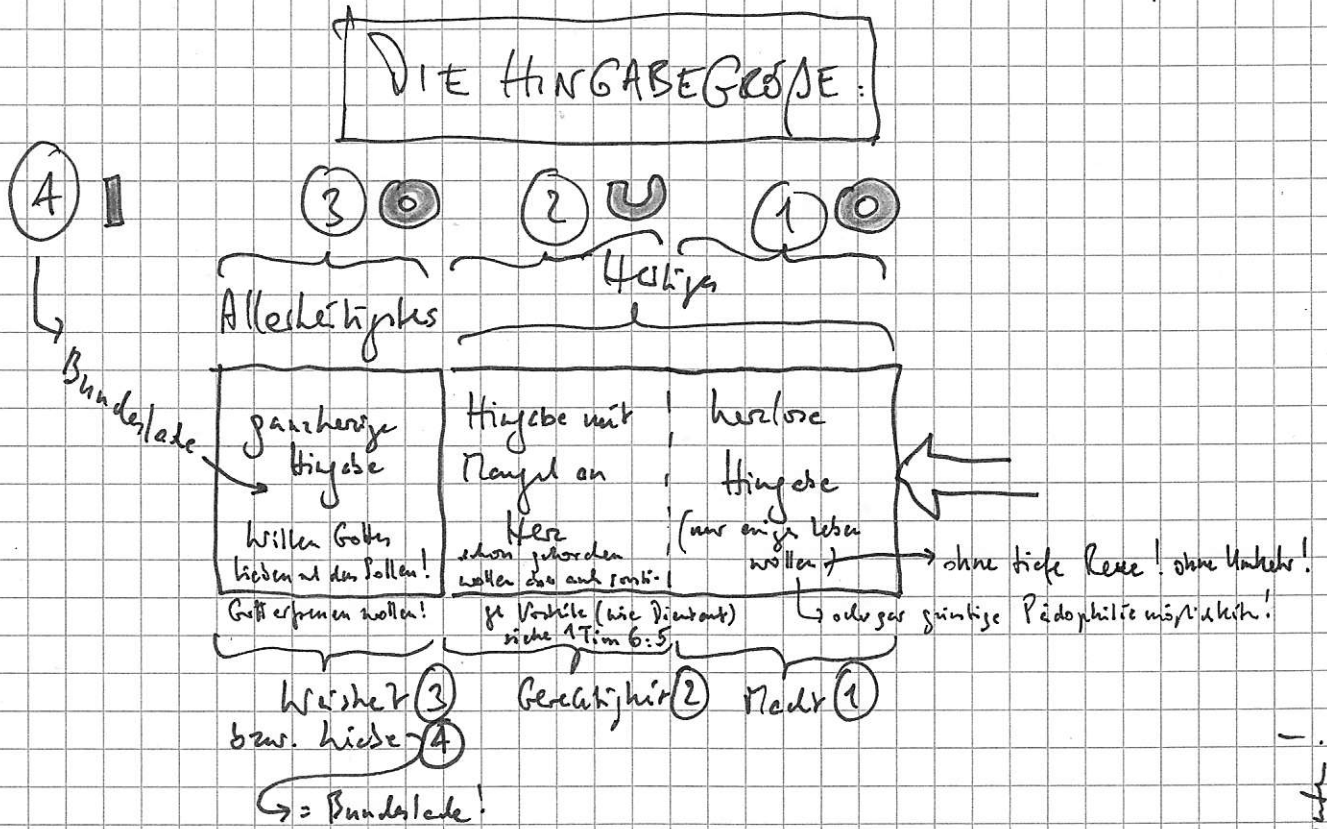 DIE HINGABEGRÖßE:
4 3 2 1
Heiliges
Allerheiligstes
Bundeslade
ganzherzige
Hingabe
Willen Gottes
lieben
Gott erfreuen wollen!
Hingabe mit
Mangel an
Herz
schon gehorchen
wollen aber auch sonsti-
ge Vorteile (wie Dienstamt)
siehe 1Tim 6:5
herzlose
Hingabe
(nur ewiges Leben
wollen)
ohne tiefe Reue! ohne Umkehr!
oder gar günstige Pädophiliemöglichkeit!
Weisheit 3
bzw. Liebe 4
= Bundeslade!
Gerechtigkeit 2
Macht 1